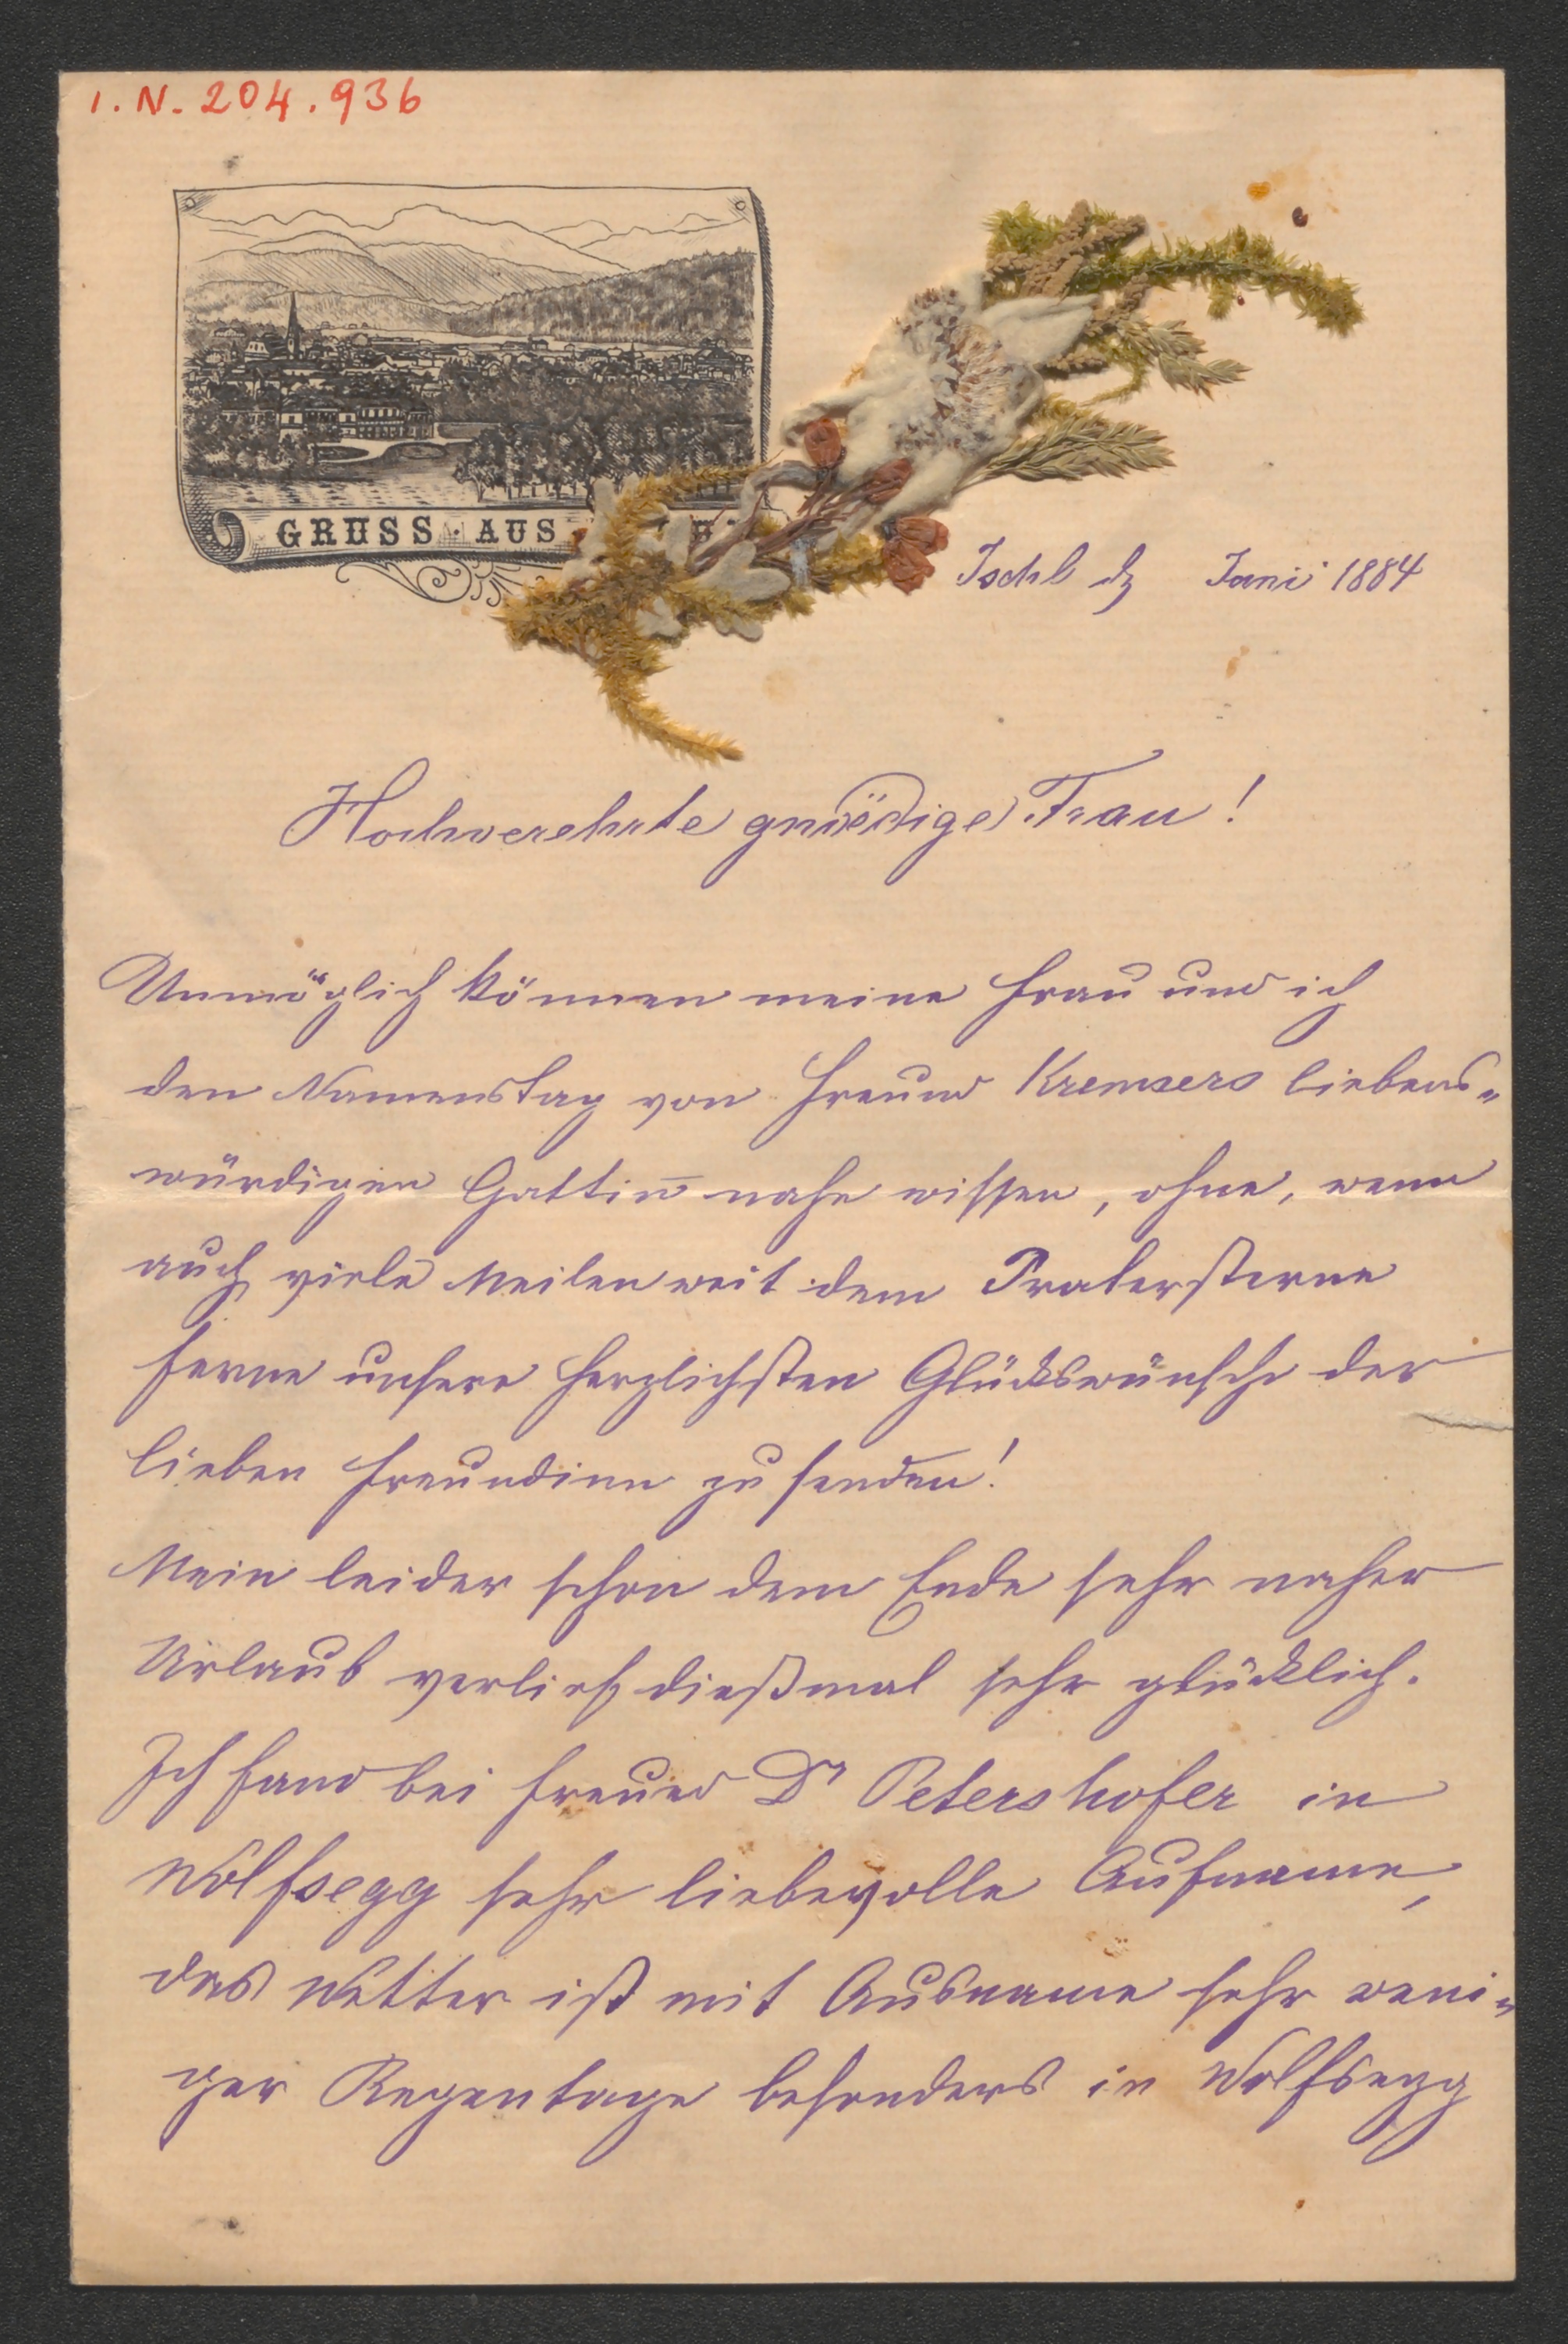 I. N. 204.936
GRUSS AUS
Ischl dz Juni 1884
Hochverehrte gnädige Frau!
Unmöglich können meine Frau und ich
den Namenstag von Freund Kremsers liebens-
würdigen Gattin̅ nahe wissen, ohne, wenn
auch viele Meilen weit dem Pratersterne
ferne unsere herzlichsten Glückswünsche der
lieben Freundinn zu senden!
Mein leider schon dem Ende sehr naher
Urlaub verlief dießmal sehr glücklich.
Ich fand bei Freund Dr Petershofer in
Wolfsegg sehr liebevolle Aufname,
das Wetter ist mit Ausname sehr weni-
ger Regentage besonders in Wolfsegg